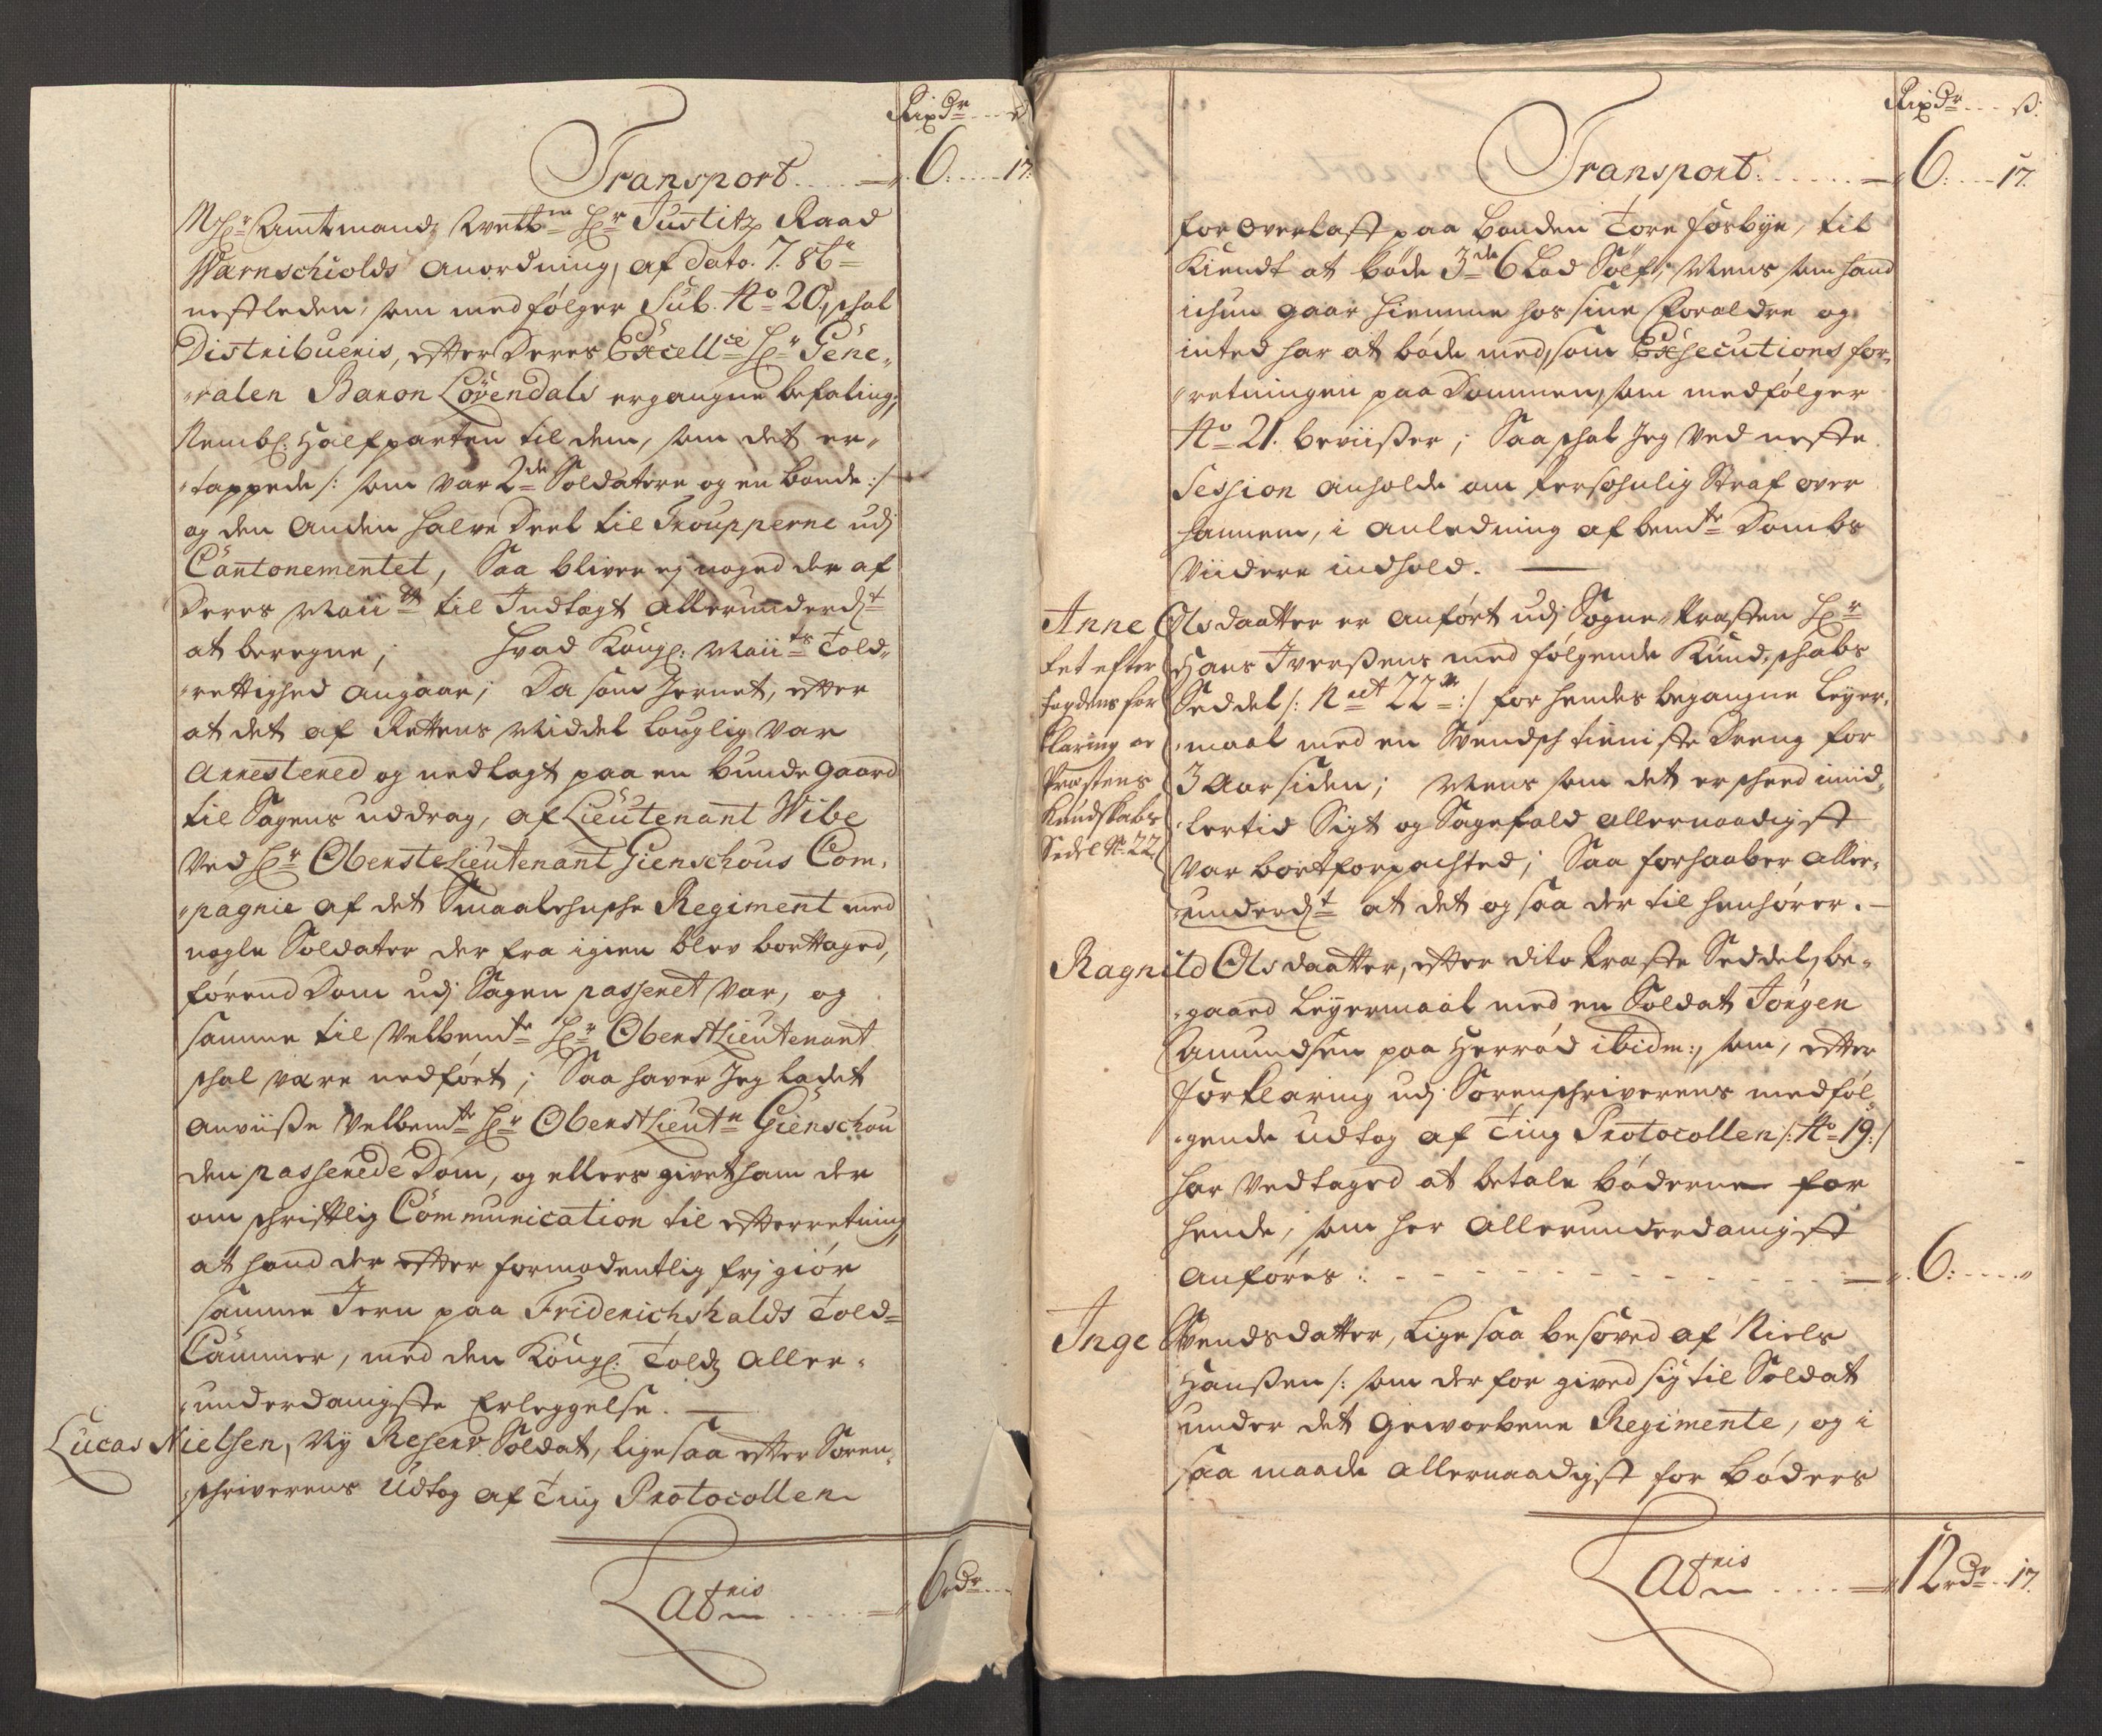 Rixdr ... ß
Transport ..... 6: .... 17:
Hr Amtmand Hr Justitz Raad
Warnschiolds anordning, af dato. 7. 8br
nestleden, som medfølger Sub. No 20, schal
Distribueris, efter deres Excellce Hr Gene-
ralen Baron Løvendals ergangne befaling,
Nembl: Halfparten til dem, som det er-
tappede /: som var 2de Soldatere og en bonde :/
og den anden halve deel til Troupperne udj
Cantonementet, Saa bliver ej noged der af
Deres Maiitt til Indtægt allerunderdt
at beregne; Hvad Kongl: Maiits Told-
rettighed angaar; Da som Jernet, efter
at det af Rettens Middel louglig var
Arrestered og nedlagt paa en bunde gaard
til Sagens uddrag, af Lieutenant Wibe
ved Hr Oberste Lieutenant Gienschous Com-
pagnie af det Smaalehnsche Regiment med
nogle Soldater der fra igien blev borttaged,
førend Dom udj Sagen passeret var, og
samme til Velbemte Hr Oberstlieutenant
schal være nedført; Saa haver Jeg ladet
anviise Velbemte Hr Oberstlieutn Gienschou
den passerede Dom, og ellers givet ham der
om schriftlig Communication til efterretning,
at hand der efter formodentlig frj giør
samme Jern paa Friderichshalds Told-
Cammer, med den Kongl: Tolds aller-
underdanigste Erleggelse.
Lucas Nielsen, Ny Reserv Soldat, ligesaa efter Soren-
schriverens Udtog af Ting Protocollen
Latris ..... 6 rdr ...
Rixdr ... ß:
Transport: ...... 6: ... 17.
for overlast paa bonden Tore Forbye, til
Kiendt at bøde 3de 6 Lod Sølf; Mens som hand
ichun gaar hiemme hos sine Foraldre og
inted har at bøde med, som Exsecutions for-
retningen paa Dommen, som medfølger
No 21. beviißer; Saa schal Jeg ved neste
Session anholde om Persohnlig Straf over
hannem, i anledning af bemte Dombs
Viidere indhold.
Anne Olsdaatter er anført udj Sogne Præsten Hr
Hans Iverßens med følgende Kundschabs
Seddel /: No 22 :/ for hendes begangne Leyer-
maal med en Svendsch tieniste Dreng for
3 Aar siden; Mens som det er scheed imid-
lertid Sigt og Sagefald allernaadigst
var bortforpachted; Saa forhaaber aller-
underdt at det og saa der til henhører.
Det efter
fogdens for
klaring og
Præstens
Kundskabs
Sedel No. 22
Ragnild Olsdaatter, efter dito Præste Seddel, be-
gaaed Leyermaal med en Soldat Jørgen
Amundsen paa Herrød ibidm:, som, efter
forklaring udj Sorenschriverens medføl-
gende Udtog af Ting Protocollen /: No 19 :/
har vedtaged at betale bøderne for
hende, som her allerunderdanigst
anføres: ..... 6: ....
Inge Svendsdatter, ligesaa besøved af Niels
Hanßen /: som der for gived sig til Soldat
under det Geworbene Regimente, og i
saa maade allernaadigst for bøders
Latris .... 12 rdr .. 17.